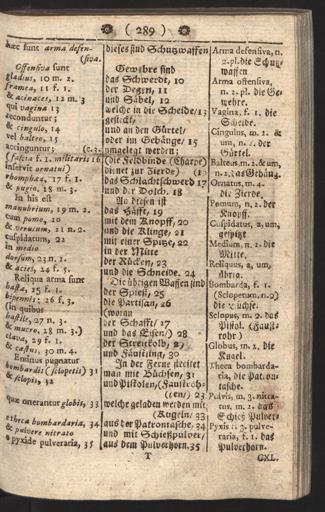 ( 289 )
hæc sunt arma defen-
(siva.
Offensiva sunt
gladius, 10 m. 2.
framea, 11 f. 1.
& acinaces, 12 m. 3
qui vagina 13
reconduntur;
& cingulo, 14
vel balteo, 15
accinguntur;
(fascia f. 1. militaris 16
inservit ornatui)
rhomphæa, 17 f. 1.
& pugio, 18 m. 3.
In his est
manubrium, 19 m. 2.
cum pomo, 20
& verutum, 21 n. 2.
cuspidatum, 22
in medio
dorsum, 23 n. 1.
& acies, 24 f. 5.
Reliqua arma sunt
hasta, 25 f. 1.
bipennis: 26 f. 3.
(in quibus
hastile, 27 n. 3.
& mucro, 28 m. 3.)
clava, 29 f. 1.
& cæstus, 30 m. 4.
Eminus pugnatur
bombardis (sclopetis) 31
& sclopis, 32
quæ onerantur globis, 33
e theca bombardaria, 34
& pulvere nitrato
e pyxide pulveraria, 35
dieses sind Schutzwaffen
Gewehre sind
das Schwerdt, 10
der Degen, 11
und Säbel, 12
welche in die Scheide/13
gesteckt/
und an den Gürtel/
oder im Gehänge, 15
umgelegt werden;
(die Feldbinde (Charpe)
dienet zur Zierde)
das Schlachtschwerd 17
und der Dolch. 18
An diesen ist
das Häfft, 19
mit dem Knopff, 20
und die Klinge, 21
mit einer Spitze, 22
in der Mitte
der Rücken, 23
und die Schneide. 24
Die übrigen Waffen sind
der Spieß, 25
die Partisan, 26
(woran
der Schafft/ 27
und das Eisen/) 28
der Streitkolb, 29
und Fäustling, 30
In der Ferne streitet
man mit Büchsen, 31
und Pistolen,(Faustroh-
welche geladen werden mit
(Kugeln/ 33
aus der Patrontasche, 34
und mit Schießpulver/
aus dem Pulverhorn. 35
T
Arma defensiva, n.
2. pl. die Schutz
waffen
Arma offensiva,
n. 2. pl. die Ge-
wehre.
Vagina, f. 1. die
Scheide.
Cingulus, m. 2. &
um, n. 2. der
Gürtel.
Balteus, m. 2. & um,
n. 2. das Gehäng.
Ornatus, m. 4.
die Zierde.
Pomum, n. 2. der
Knopff.
Cuspidatus, a, um,
gespitzt
Medium, n. 2. die
Mitte.
Reliquus, a, um,
übrig.
Bombarda, f. 1.
(Sclopetum, n. 2)
die Büchse.
Sclopus, m. 2. das
Pistol. (Faust-
rohr)
Globus, m. 2. die
Kugel.
Theca bombarda-
ria, die Patron-
tasche.
Pulvis, m. 3. nitra-
tus, m. 2. das
Schieß Pulver
Pyxis f. 3. pulve-
raria, f. 1. das
Pulverhorn.
CXL.